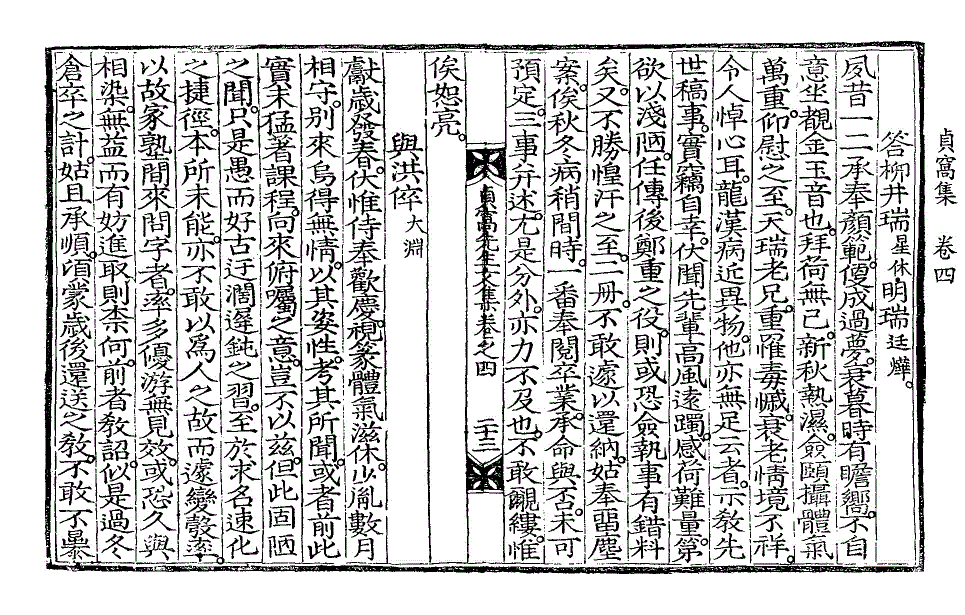 貞窩集 卷四
答柳井瑞星休明瑞廷爀。
夙昔一二承奉顔範。優成過夢。衰暮時有瞻嚮。不自
意坐覩金玉音也。拜荷無已。新秋執濕。僉頤攝體氣
萬重。仰慰之至。天瑞老兄。重罹毒慽。衰老情境不祥。
令人悼心耳。龍漢病近異物。他亦無足云者。示敎先
世稿事。實竊自幸。伏聞先輩高風遠躅。感荷難量。第
欲以淺陋。任傳後鄭重之役。則或恐僉執事有錯料
矣。又不勝惶汗之至。二册。不敢遽以還納。姑奉留塵
案。俟秋冬病稍間時。一番奉閱卒業。承命與否。未可
預定。三事幷述。尤是分外。亦力不及也。不敢覼縷。惟
貞窩先生文集卷之四 二十三
俟恕亮。
與洪倅大淵
獻歲發春。伏惟侍奉歡慶。視篆體氣滋休。少胤數月
相守。別來烏得無情。以其姿性。考其所聞。或者前此
實未猛著課程。向來俯囑之意。豈不以玆。但此固陋
之聞。只是愚而好古。迂濶遲鈍之習。至於求名速化
之捷徑。本所未能。亦不敢以爲人之故而遽變彀率。
以故家塾間來問字者。率多優游無見效。或恐久與
相染。無益而有妨進取則柰何。前者敎詔。似是過冬
倉卒之計。姑且承順。頃蒙歲後還送之敎。不敢不暴